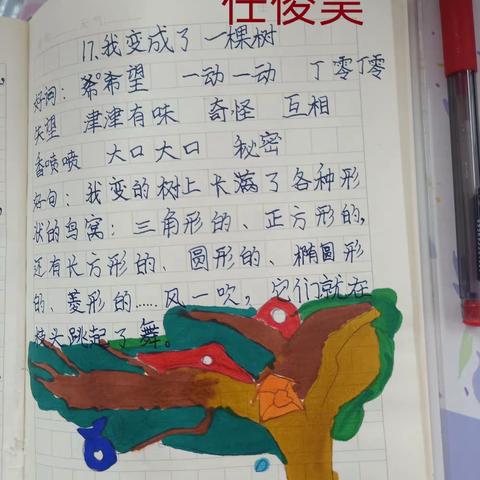 任俊昊
17.我变成了一棵树
好词：希望 一动一动 丁零丁零
失望 津津有味 奇怪 互相
香喷喷 大口大口 秘密
好句：我变的树上长满了各种形
状的鸟窝：三角形的、正方形的，
还有长方形的、圆形的、椭圆形
的、菱形的……风一吹，它们就在
枝头跳起了舞。